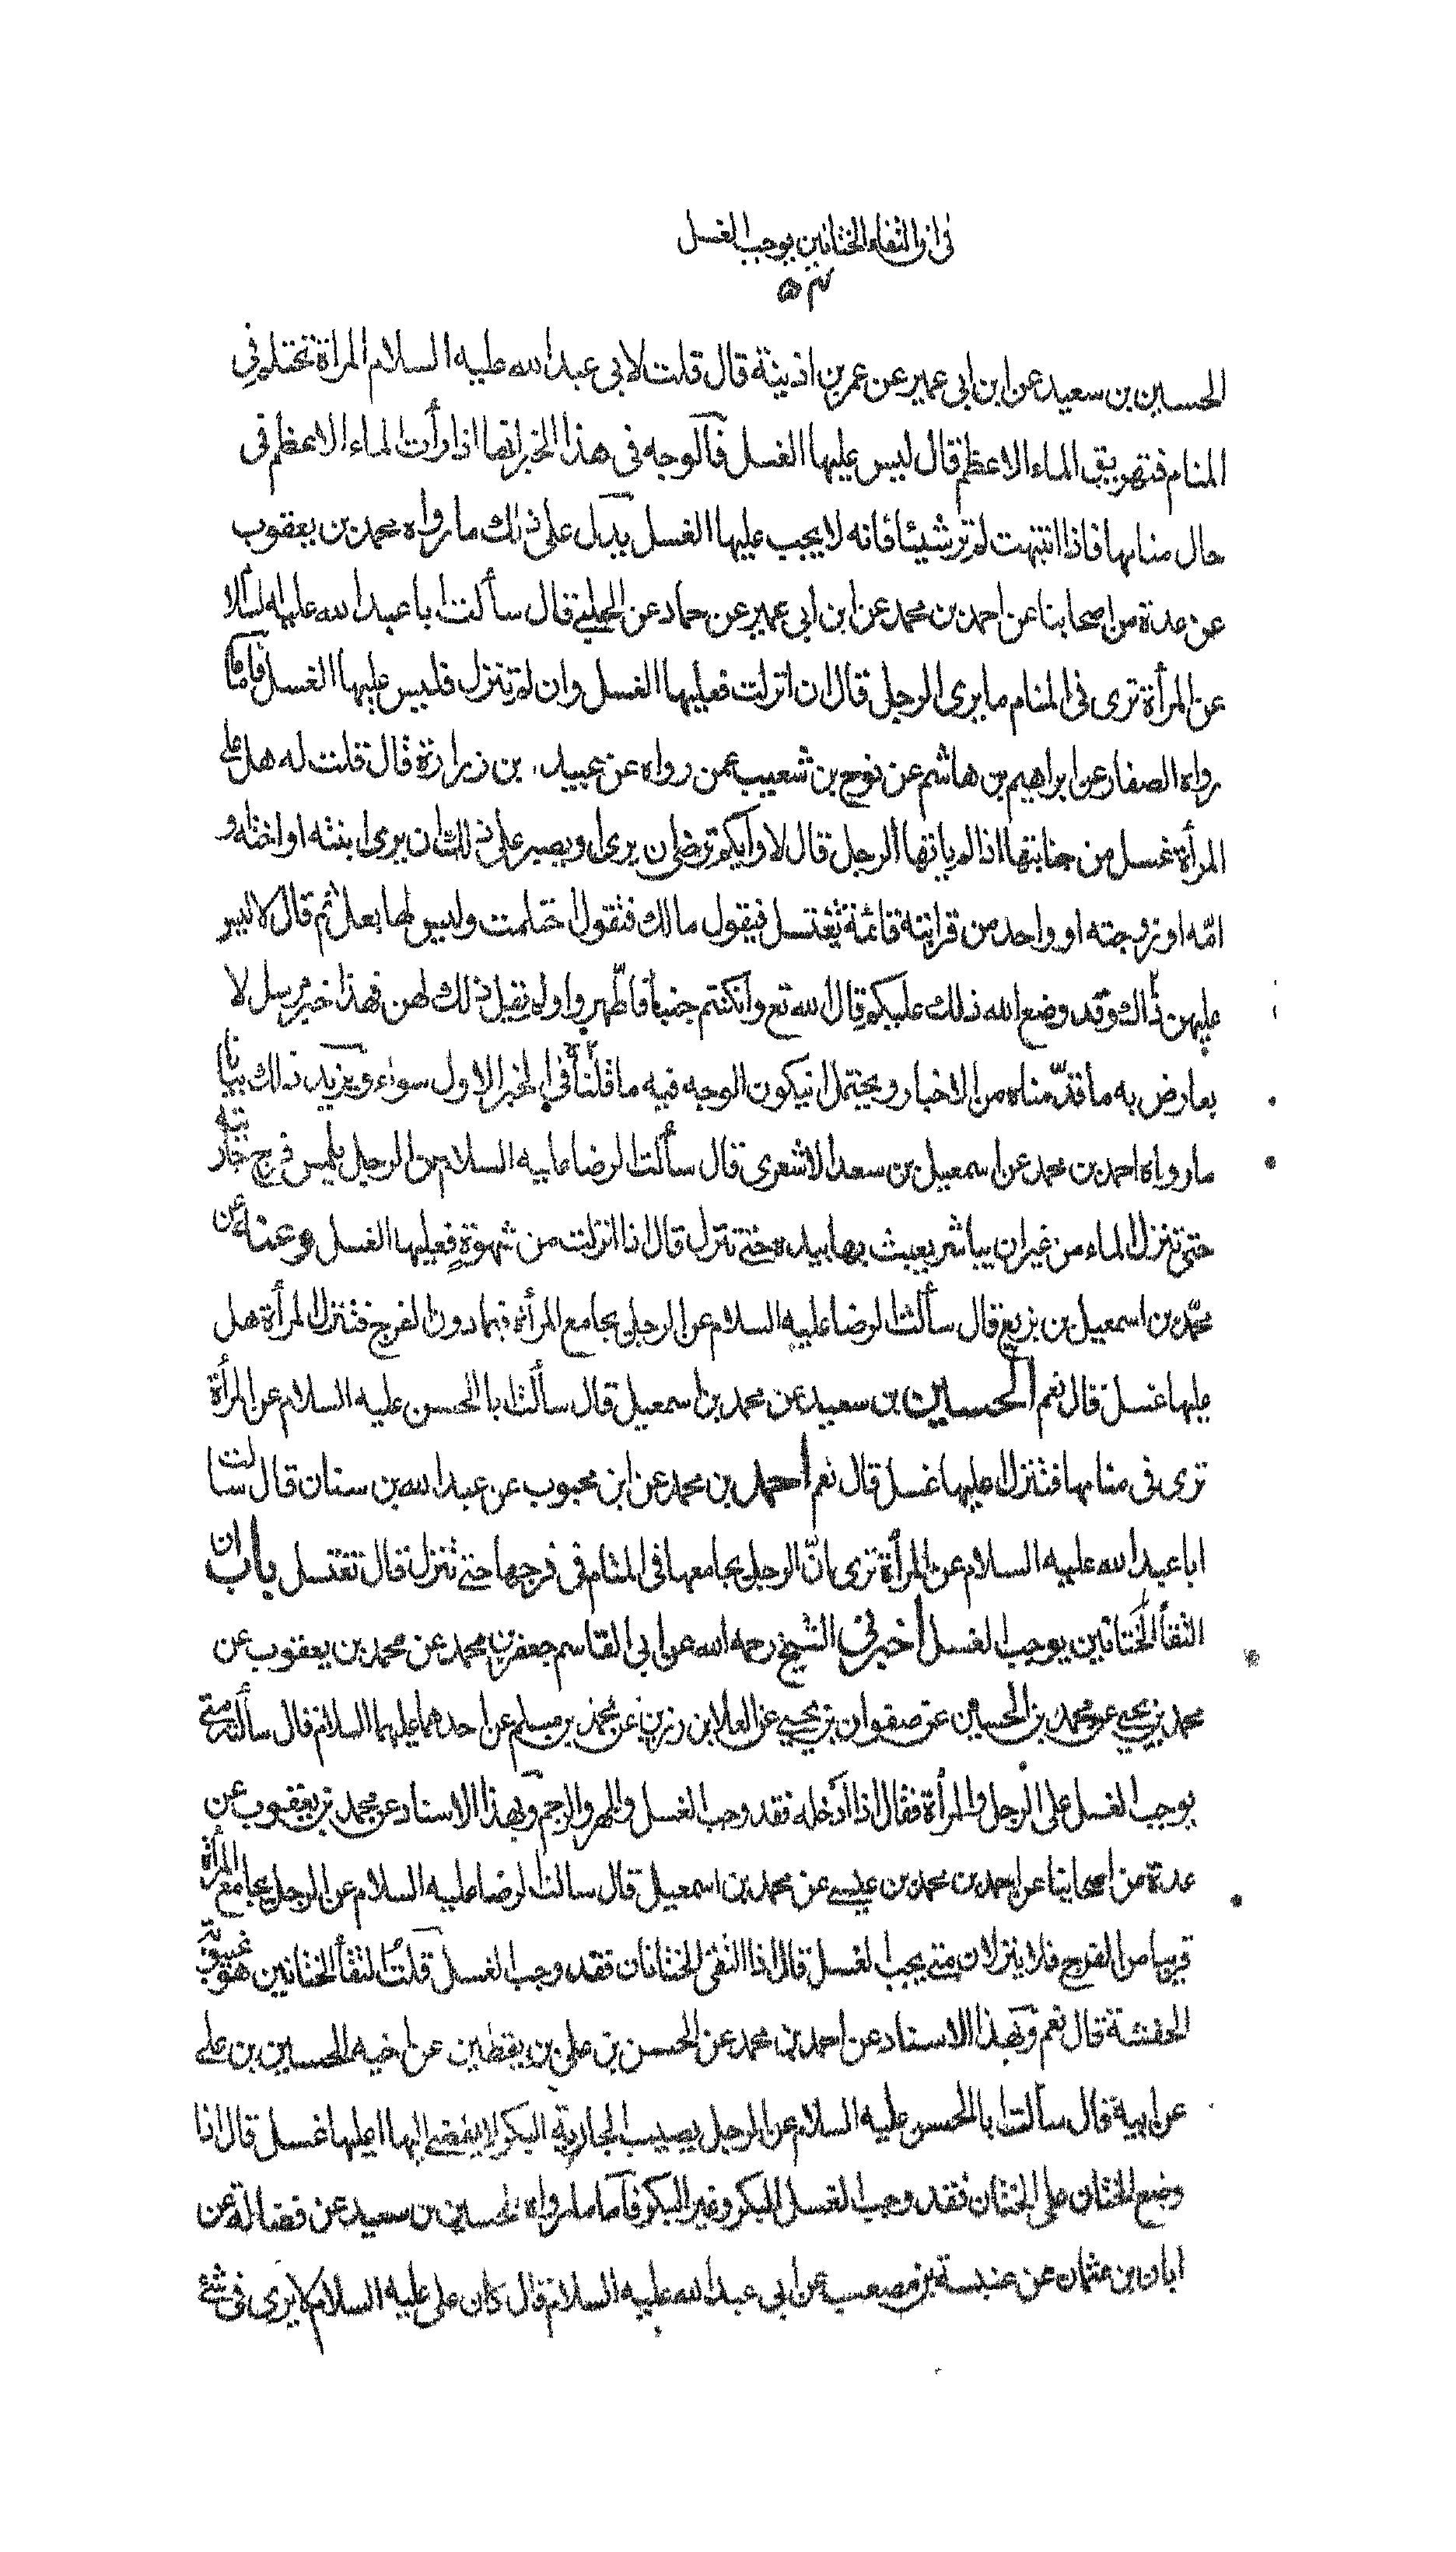 فى ان التقاء الختانين يوجب الغسل
الحسين بن سعيد عن ابن ابى عمير عن عمر بن اذينة قال قلت لابى عبد الله عليه السلام المراة تحتلم فى
المنام فتهريق الماء الاعظم قال ليس عليها الغسل فالوجه فى هذا الخبر انها اذا رأت الماء الاعظم فى
حال منامها فاذا انتبهت لم تر شيئا فانه لا يجب عليها الغسل يدل على ذلك ما رواه محمد بن يعقوب
عن عدة من اصحابنا عن احمد بن محمد عن ابن ابى عمير عن حماد عن الحلبى قال سألت ابا عبد الله عليه السلام
عن المرأة ترى فى المنام ما يرى الرجل قال ان انزلت فعليها الغسل وان لم تنزل فليس عليها الغسل فاما ما
رواه الصفار عن ابراهيم بن هاشم عن نوح بن شعيب عمن رواه عن عبيد بن زرارة قال قلت له هل على
المرأة غسل من جنابتها اذا لم ياتها الرجل قال لا وايكم يرضى ان يرى او يصبر على ذلك ان يرى ابنته او اخته و
امّه او زوجته او واحد من قرابته قائمة تغتسل فيقول مالك فتقول احتلمت وليس لها بعل ثم قال لا ليس
عليهن ذاك وقد وضع الله ذلك عليكم قال الله تع وان كنتم جنبا فاطّهروا ولم يقل ذلك لهن فهذا خبر مرسل لا
يعارض به ما قدّمناه من الاخبار ويحتمل ان يكون الوجه فيه ما قلناه فى الخبر الاول سواء ويزيد ذلك بيانا
ما رواه احمد بن محمد عن اسمعيل بن سعد الاشعرى قال سألت الرضا عليه السلام عن الرجل يلمس فرج جاريته
حتى تنزل الماء من غير ان يباشر يعبث بها بيده حتى تنزل قال اذا انزلت من شهوة فعليها الغسل وعنه عن
محمّد بن اسمعيل بن بزيع قال سألت الرضا عليه السلام عن الرجل يجامع المرأة فيما دون الفرج فتنزل المرأة هل
عليها غسل قال نعم الحسين بن سعيد عن محمد بن اسمعيل قال سألت ابا الحسن عليه السلام عن المرأة
ترى فى منامها فتنزل عليها غسل قال نعم احمد بن محمد عن ابن محبوب عن عبد الله بن سنان قال سالت
ابا عبد الله عليه السلام عن المرأة ترى انّ الرجل يجامعها فى المنام فى فرجها حتى تنزل قال تغتسل باب ان
التقأ الختانين يوجب الغسل أخبرنى الشيخ رحمه الله عن ابى القاسم جعفر بن محمد عن محمد بن يعقوب عن
محمد بن يحيى عن محمد بن الحسين عن صفوان بن يحيى عن العلا بن رزين عن محمد بن مسلم عن احدهما عليهما السلام قال سألته متى
يوجب الغسل على الرجل والمرأة فقال اذا ادخله فقد وجب الغسل والمهر والرجم وبهذا الاسناد عن محمد بن يعقوب عن
عدة من اصحابنا عن احمد بن محمد بن عيسى عن محمد بن اسمعيل قال سالت الرضا عليه السلام عن الرجل يجامع المرأة
قريبا من الفرج فلا ينزلان متى يجب الغسل قال اذا التقى الختانان فقد وجب الغسل قلت التقأ الختانين هو غيبوبة
الحفشة قال نعم وبهذا الاسناد عن احمد بن محمد عن الحسن بن على بن يقطين عن اخيه الحسين بن على
عن ابيه قال سألت ابا الحسن عليه السلام عن الرجل يصيب الجارية البكر لا يفضى اليها اعليها غسل قال اذا
وضع الختان على الختان فقد وجب الغسل البكر وغير البكر فاما ما رواه الحسين بن سعيد عن فضالة عن
ابان بن عثمان عن عنبسة بن مصعب عن ابى عبد الله عليه السلام قال كان على عليه السلام لا يرى فى شئ